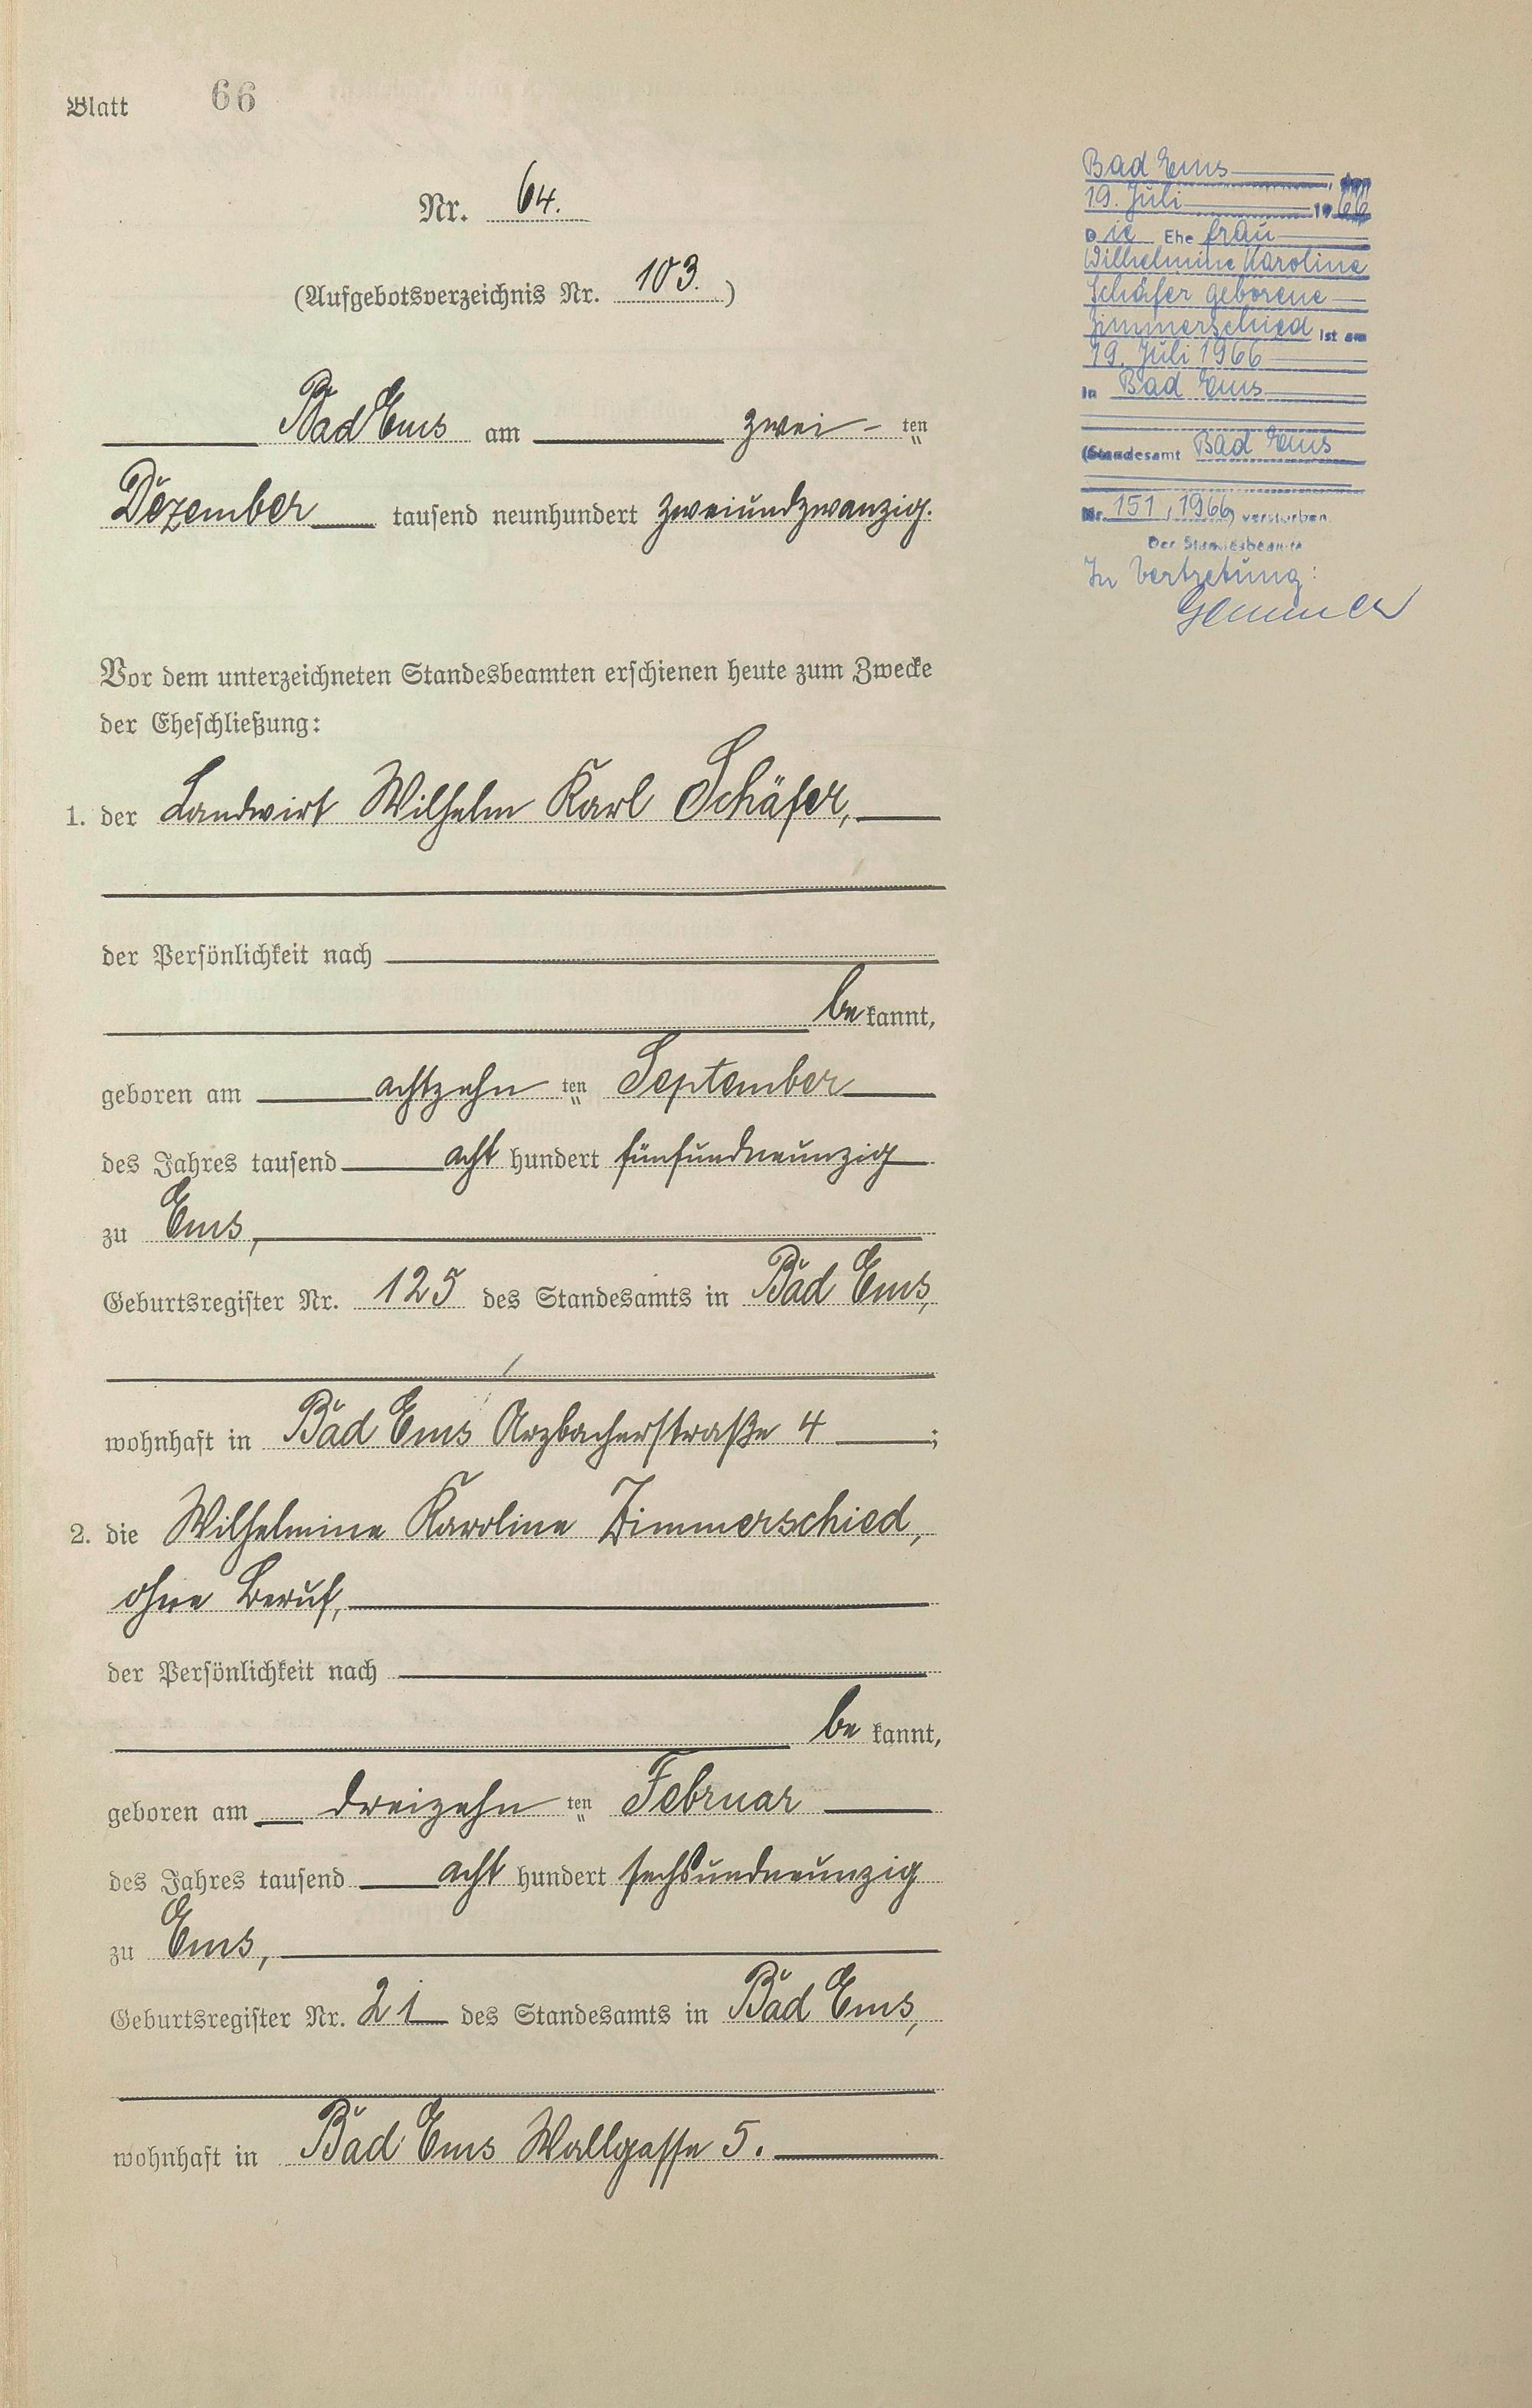 Blatt 66
Nr. 64.
(Aufgebotsverzeichnis Nr. 103.)
Bad Ems am zwei - ten
Dezember tausend neunhundert zweiundzwanzig.
Vor dem unterzeichneten Standesbeamten erschienen heute zum Zwecke
der Eheschließung:
1. der Landwirt Wilhelm Karl Schäfer,
der Persönlichkeit nach
be kannt,
geboren am achtzehn ten September
des Jahres tausend acht hundert fünfundneunzig
zu Ems,
Geburtsregister Nr. 125 des Standesamts in Bad Ems,
wohnhaft in Bad Ems Arzbacherstraße 4 ;
2. die Wilhelmine Karoline Zimmerschied,
ohne Beruf,
der Persönlichkeit nach
be kannt,
geboren am dreizehn ten Februar
des Jahres tausend acht hundert sechsundneunzig
zu Ems,
Geburtsregister Nr. 21 des Standesamts in Bad Ems,
wohnhaft in Bad Ems Wallgasse 5.
Bad Ems, den
19. Juli 1966
Die Ehefrau
Wilhelmine Karoline
Schäfer geborene
Zimmerschied ist am
19. Juli 1966
in Bad Ems
(Standesamt Bad Ems
Nr. 151/1966) verstorben.
Der Standesbeamte
In Vertretung: